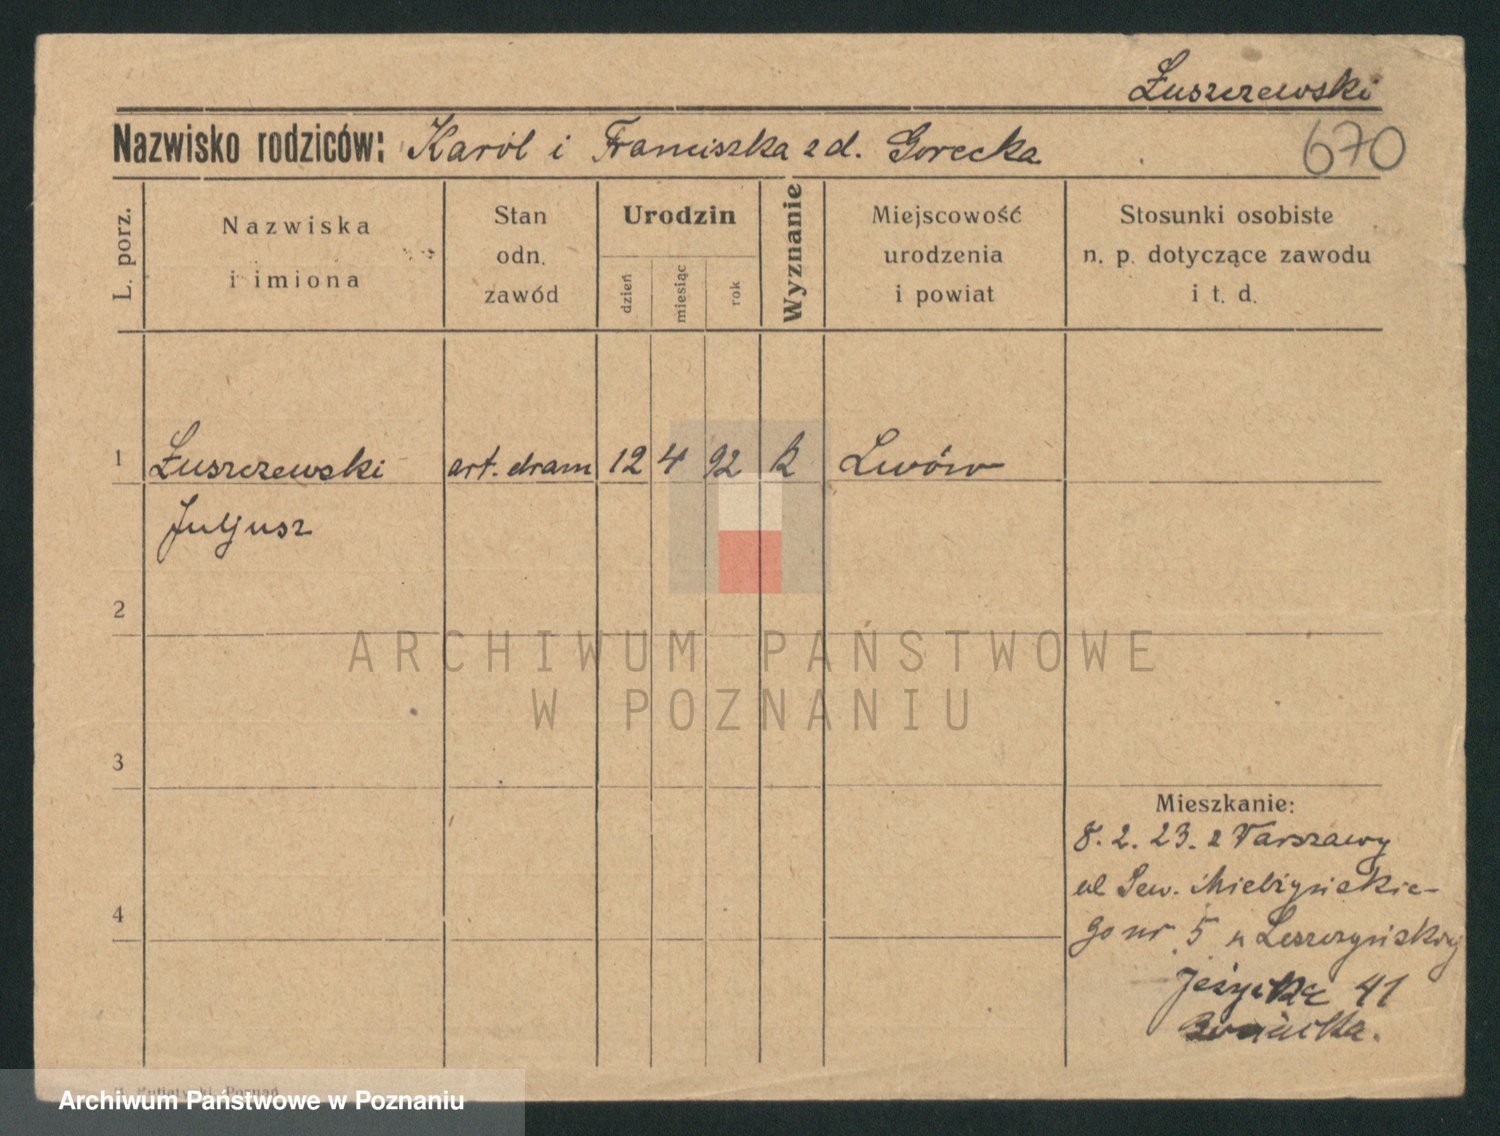 Łuszczewski
Nazwisko rodziców: Karól i Franciszka z d. Gorecka
670
L. porz.
Nazwiska
i imiona
Stan
odn.
zawód
Urodzin
dzień
miesiąc
rok
Wyznanie
Miejscowość
urodzenia
i powiat
Stosunki osobiste
n. p. dotyczące zawodu
i t. d.
1 Łuszczewski art. dram 12 4 92 k Lwów
Juljusz
2
ARCHIWUM PAŃSTWOWE
W POZNANIU
3
Mieszkanie:
8. 2. 23. z Warszawy
ul Sew. Mielżyńskie-
4
go nr 5 u Leszczyńskiej
41
Poznań
Archiwum Państwowe w Poznaniu